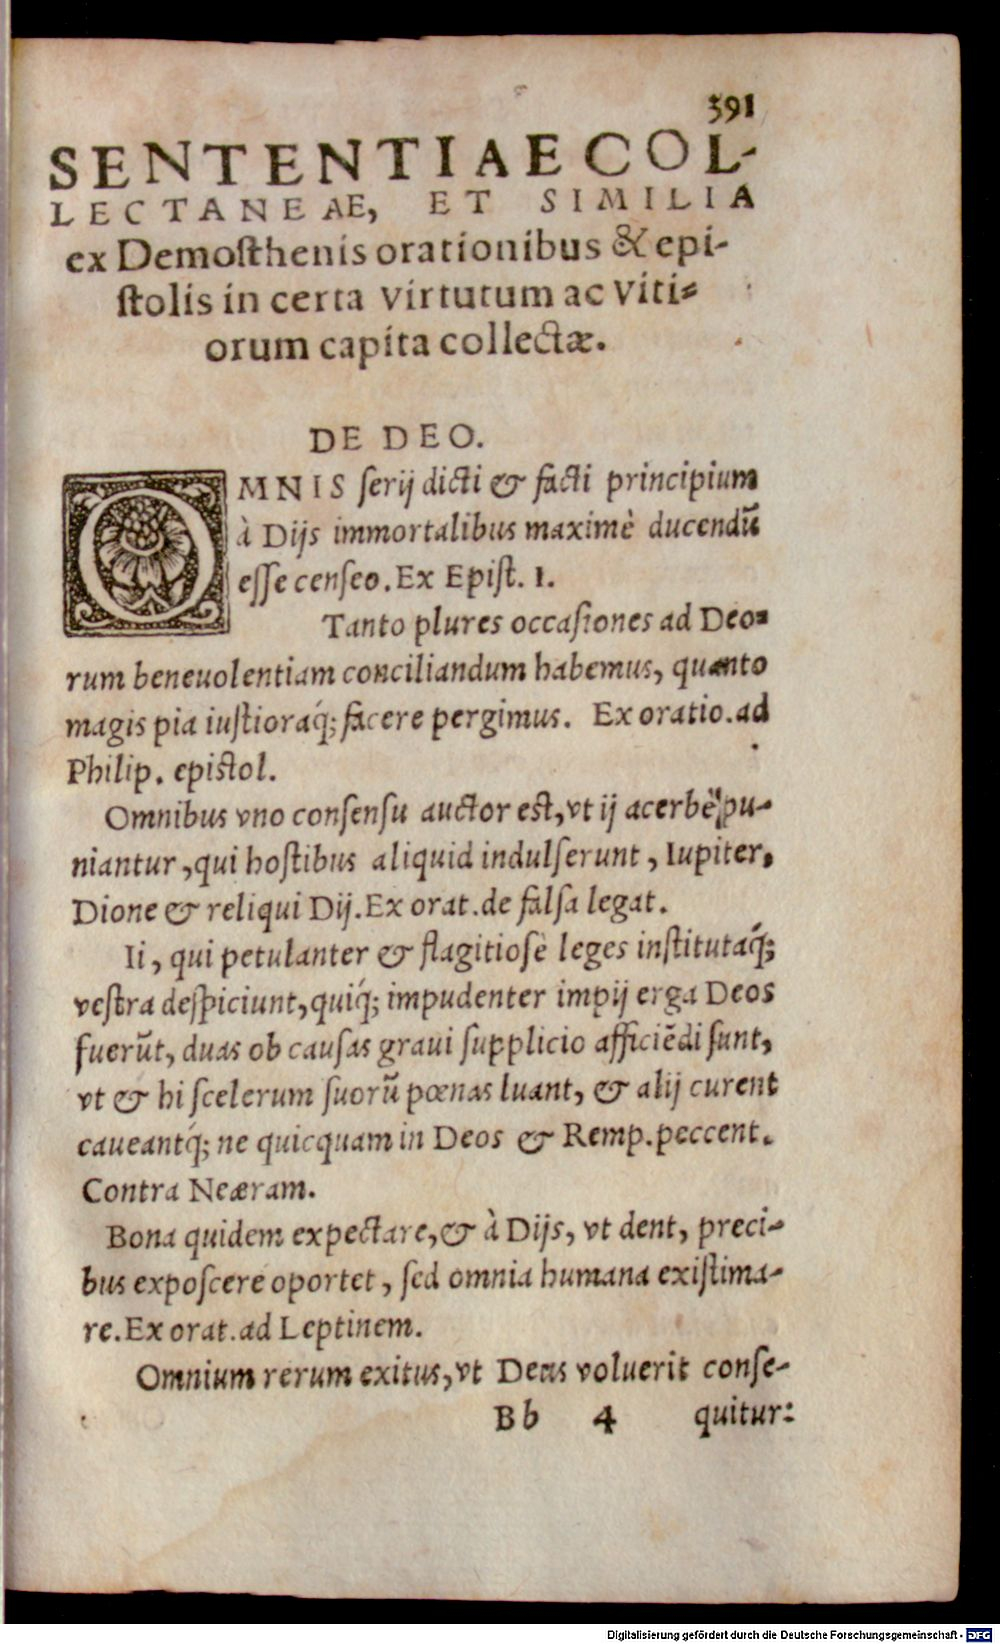 391
SENTENTIAE COL-
LECTANEAE, ET SIMILIA
ex Demosthenis orationibus & epi-
stolis in certa virtutum ac viti-
orum capita collectæ.
DE DEO.
OMNIS serij dicti & facti principium
à Dijs immortalibus maximè ducendũ
esse censeo. Ex Epist. 1.
Tanto plures occasiones ad Deo-
rum beneuolentiam conciliandum habemus, quanto
magis pia iustioraq́; facere pergimus. Ex oratio. ad
Philip. epistol.
Omnibus vno consensu auctor est, vt ij acerbè pu-
niantur, qui hostibus aliquid indulserunt, Iupiter,
Dione & reliqui Dij. Ex orat. de falsa legat.
Ii, qui petulanter & flagitiosè leges institutaq́;
vestra despiciunt, quiq́; impudenter impij erga Deos
fuerũt, duas ob causas graui supplicio afficiẽdi sunt,
vt & hi scelerum suorũ pœnas luant, & alij curent
caueantq́; ne quicquam in Deos & Remp. peccent.
Contra Neæram.
Bona quidem expectare, & à Dijs, vt dent, preci-
bus exposcere oportet, sed omnia humana existima-
re. Ex orat. ad Leptinem.
Omnium rerum exitus, vt Deus voluerit conse-
Bb 4 quitur:
Digitalisierung gefördert durch die Deutsche Forschungsgemeinschaft - DFG